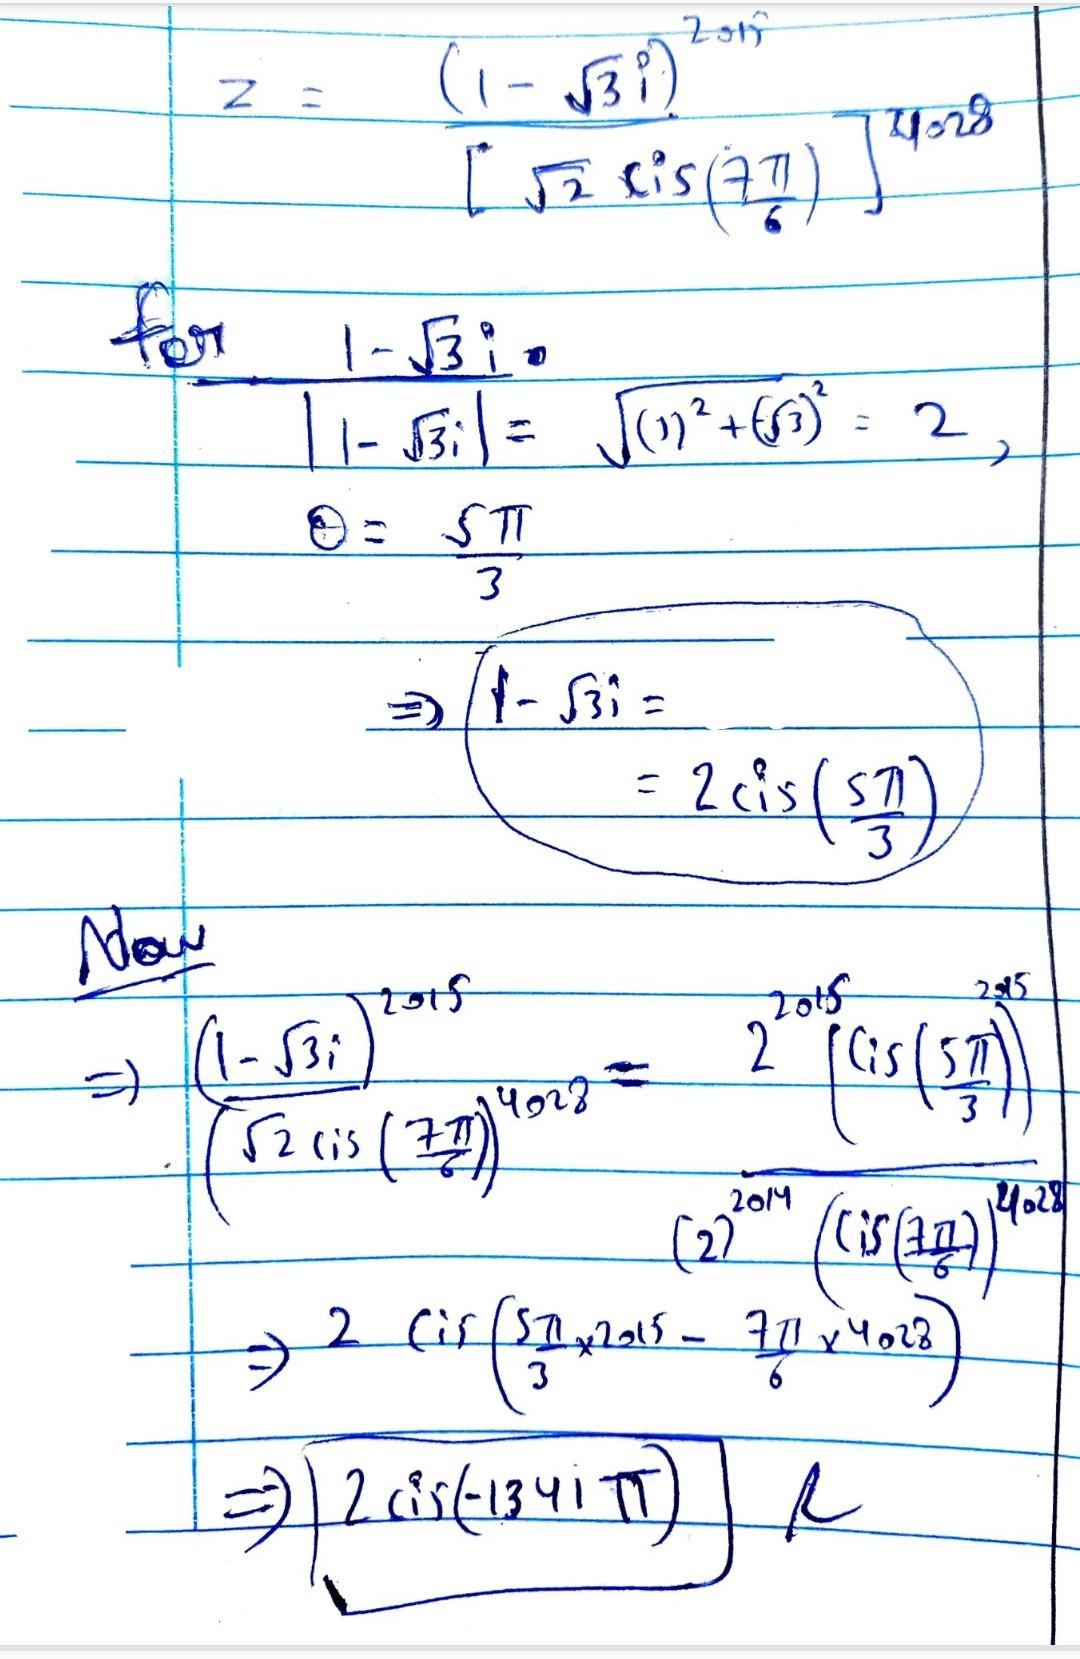 z = (1 - √3 i)^2015 / [√2 cis(7π/6)]^4028
for 1 - √3 i .
|1 - √3i| = √((1)² + (√3)²) = 2,
θ = 5π/3
⇒ 1 - √3i =
= 2 cis(5π/3)
Now
⇒ (1 - √3i)^2015 / (√2 cis(7π/6))^4028 = 2^2015 [cis(5π/3)]^2015 / (2)^2014 (cis(7π/6))^4028
⇒ 2 cis(5π/3 × 2015 - 7π/6 × 4028)
⇒ 2 cis(-1341 π)